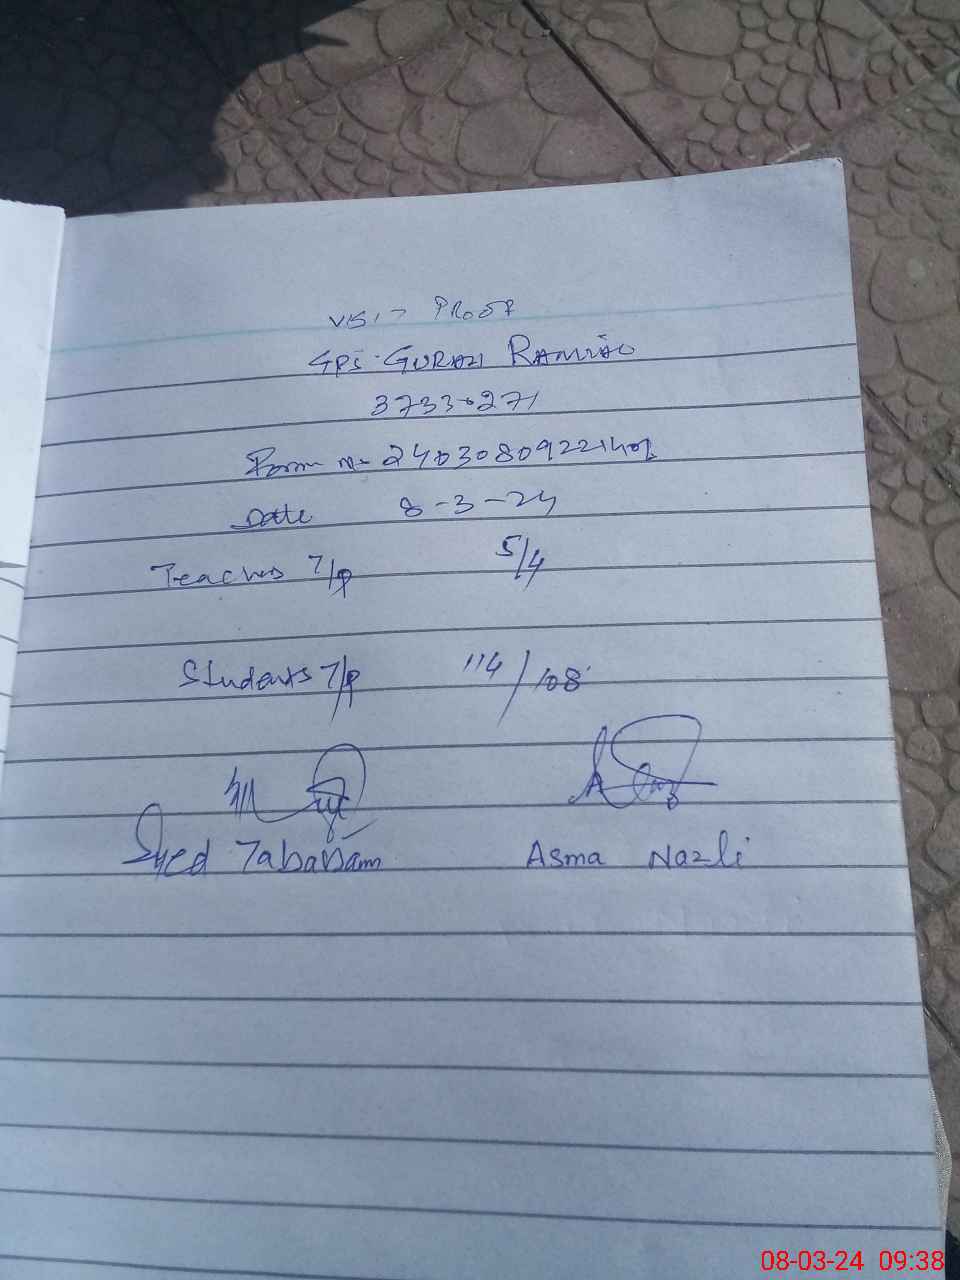 VISIT PROOF
GPS GURAH
37330271
Form No 24030809221401
Date 8-3-24
Teachers T/P 5/4
Students T/P 114/108
Syed Tabassam Asma Nazli
08-03-24 09:38